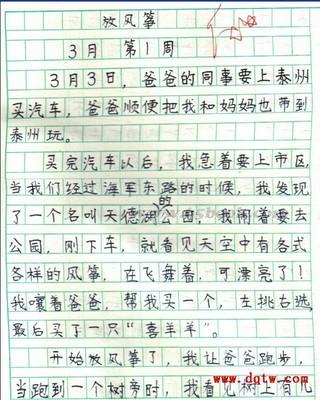 放风筝
3月 第1周
3月3日，爸爸的同事要上泰州
买汽车，爸爸顺便把我和妈妈也带到
泰州玩。
买完汽车以后，我急着要上市区，
当我们经过海军东路的时候，我发现
了一个名叫天德湖的公园，我闹着要去
公园，刚下车，就看见天空中有各式
各样的风筝，在飞舞着，可漂亮了！
我嚷着爸爸，帮我买一个，左挑右选，
最后买了一只“喜羊羊”。
开始放风筝了，我让爸爸跑步，
当跑到一个树旁时，我看见树上有几
www.dqtw.com